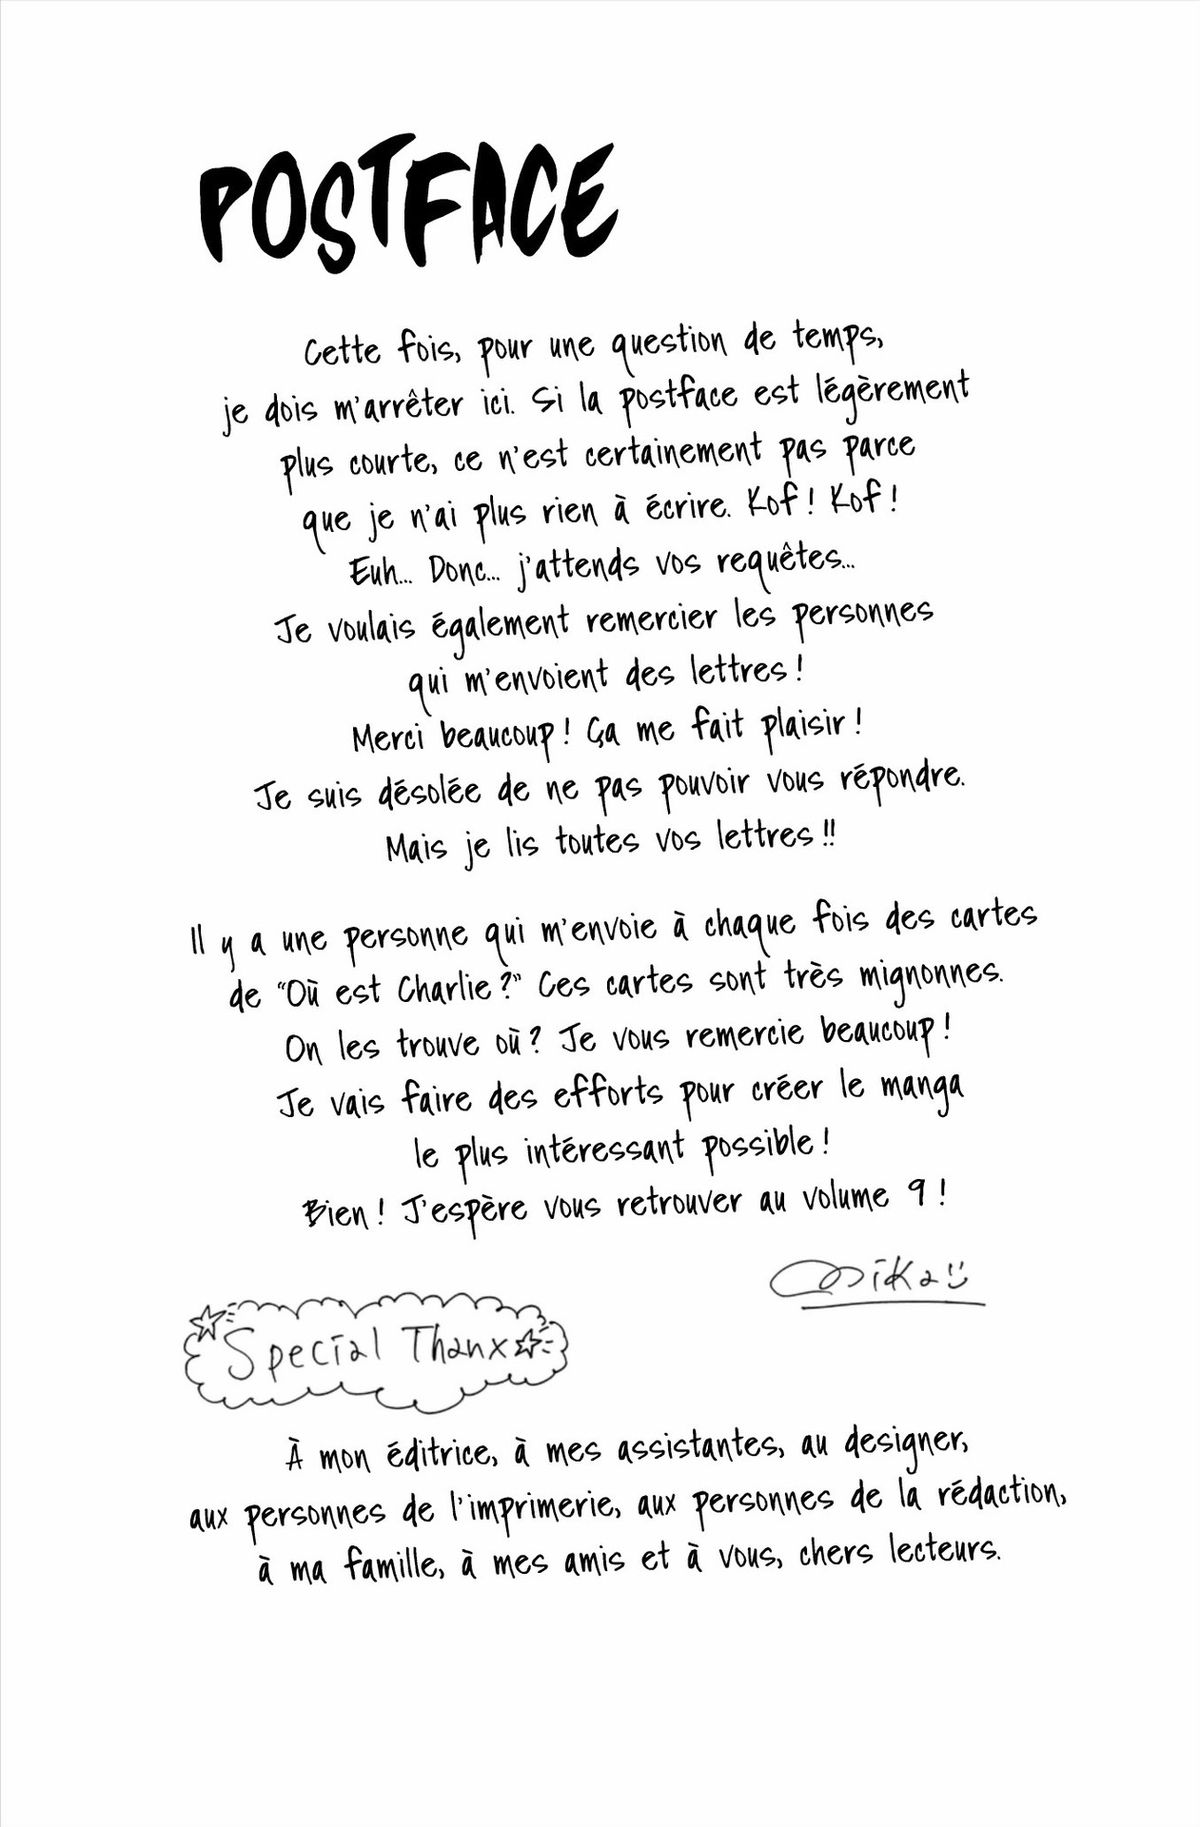 POSTFACE
Cette fois, pour une question de temps,
je dois m'arrêter ici. Si la postface est légèrement
plus courte, ce n'est certainement pas parce
que je n'ai plus rien à écrire. Kof ! Kof !
Euh... Donc... j'attends vos requêtes...
Je voulais également remercier les personnes
qui m'envoient des lettres !
Merci beaucoup ! Ça me fait plaisir !
Je suis désolée de ne pas pouvoir vous répondre.
Mais je lis toutes vos lettres !!
Il y a une personne qui m'envoie à chaque fois des cartes
de "Où est Charlie ?" Ces cartes sont très mignonnes.
On les trouve où ? Je vous remercie beaucoup !
Je vais faire des efforts pour créer le manga
le plus intéressant possible !
Bien ! J'espère vous retrouver au volume 9 !
Mika
Special Thanx
À mon éditrice, à mes assistantes, au designer,
aux personnes de l'imprimerie, aux personnes de la rédaction,
à ma famille, à mes amis et à vous, chers lecteurs.